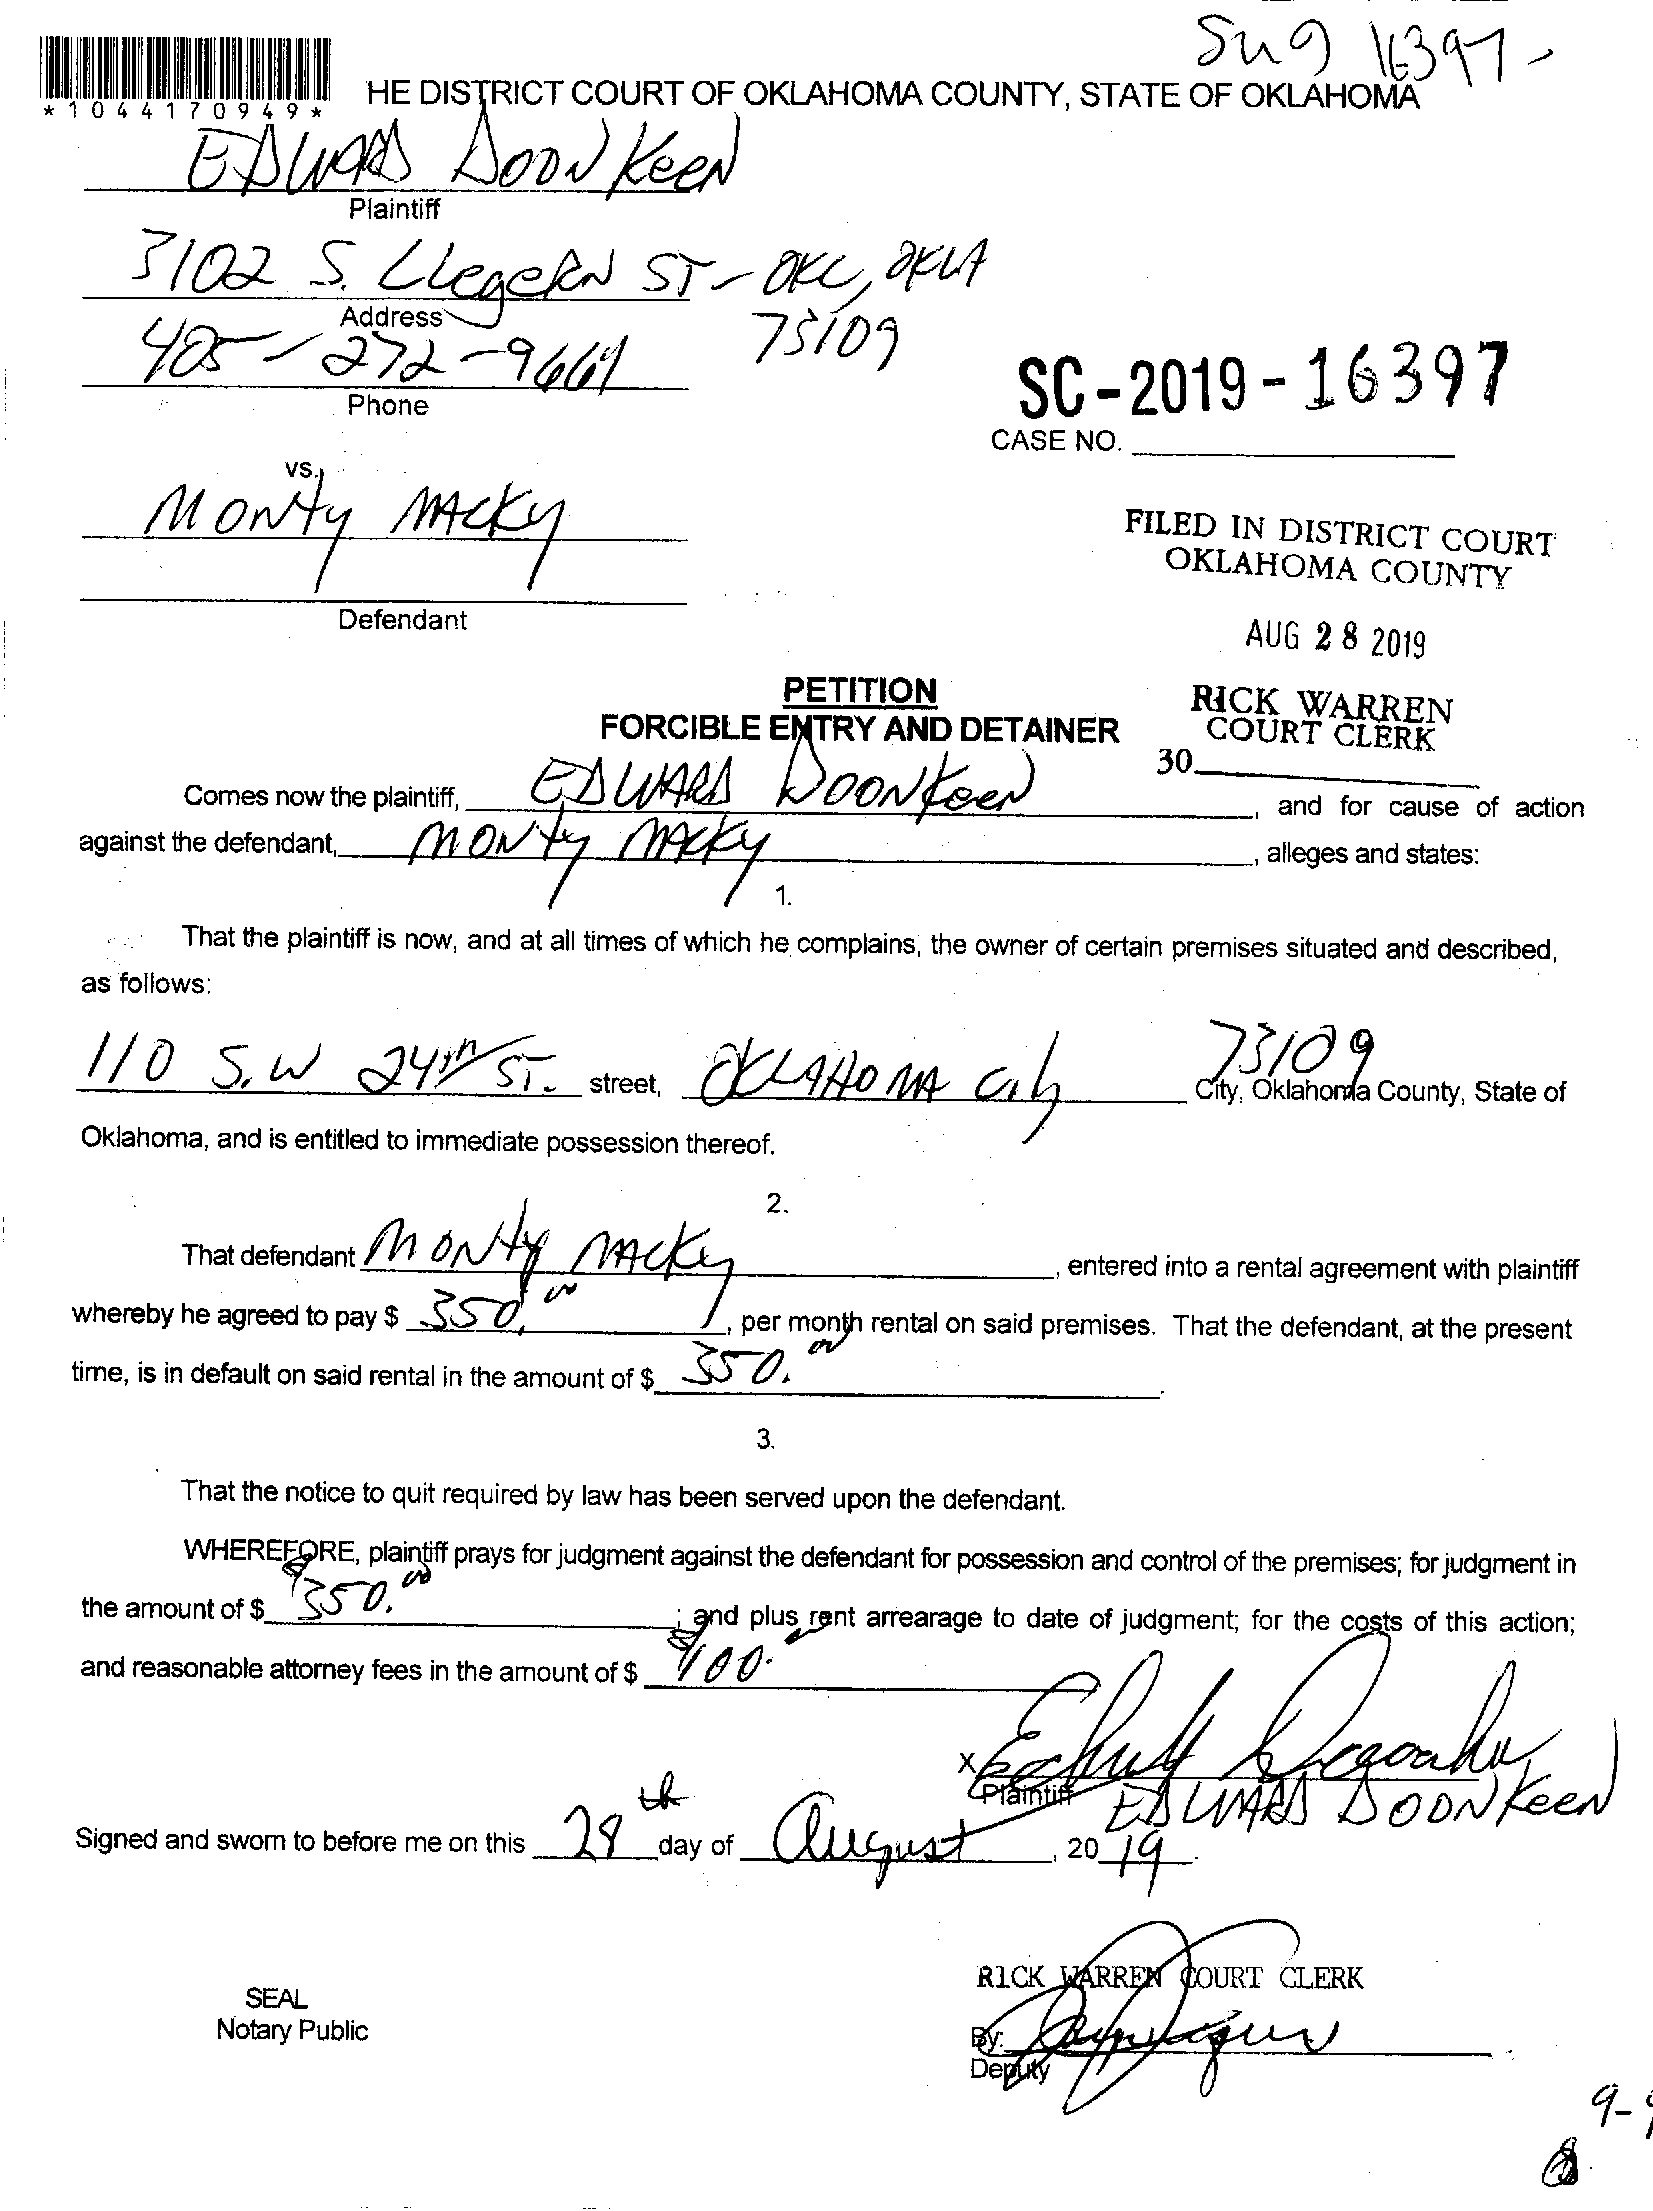 SC19 16397-
*1044170949*
HE DISTRICT COURT OF OKLAHOMA COUNTY, STATE OF OKLAHOMA
EDWARD DOONKEEN
Plaintiff
3102 S. LLegeRN ST - OKC, OKLA
Address
73109
405-272-9661
Phone
SC-2019-16397
CASE NO.
vs.
MONTY MACKY
Defendant
FILED IN DISTRICT COURT
OKLAHOMA COUNTY
AUG 28 2019
RICK WARREN
COURT CLERK
30
PETITION
FORCIBLE ENTRY AND DETAINER
Comes now the plaintiff, EDWARD DOONKEEN, and for cause of action
against the defendant, MONTY MACKY, alleges and states:
1.
That the plaintiff is now, and at all times of which he complains, the owner of certain premises situated and described,
as follows:
110 S.W 24TH ST. street, OKLAHOMA City 73109 City, Oklahoma County, State of
Oklahoma, and is entitled to immediate possession thereof.
2.
That defendant MONTY MACKY, entered into a rental agreement with plaintiff
whereby he agreed to pay $ 350.00, per month rental on said premises. That the defendant, at the present
time, is in default on said rental in the amount of $ 350.00.
3.
That the notice to quit required by law has been served upon the defendant.
WHEREFORE, plaintiff prays for judgment against the defendant for possession and control of the premises; for judgment in
the amount of $ $350.00; and plus rent arrearage to date of judgment; for the costs of this action;
and reasonable attorney fees in the amount of $ $100.
X
Plaintiff EDWARD DOONKEEN
Signed and sworn to before me on this 28th day of August, 2019.
RICK WARREN COURT CLERK
SEAL
Notary Public
By:
Deputy
9-9